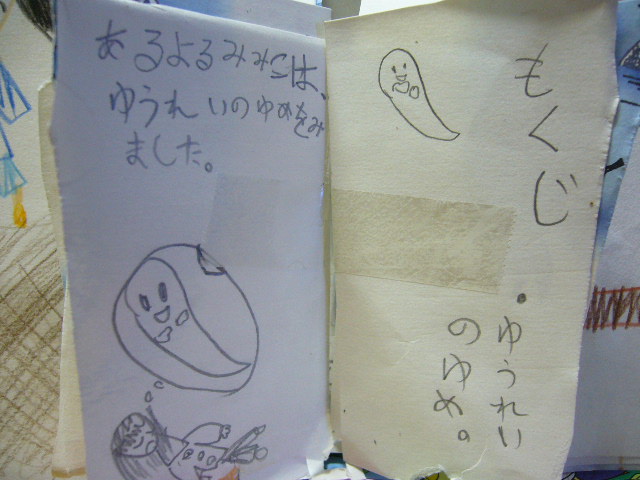 もくじ
・ゆうれい
のゆめ。
あるよるみみこは、
ゆうれいのゆめをみ
ました。